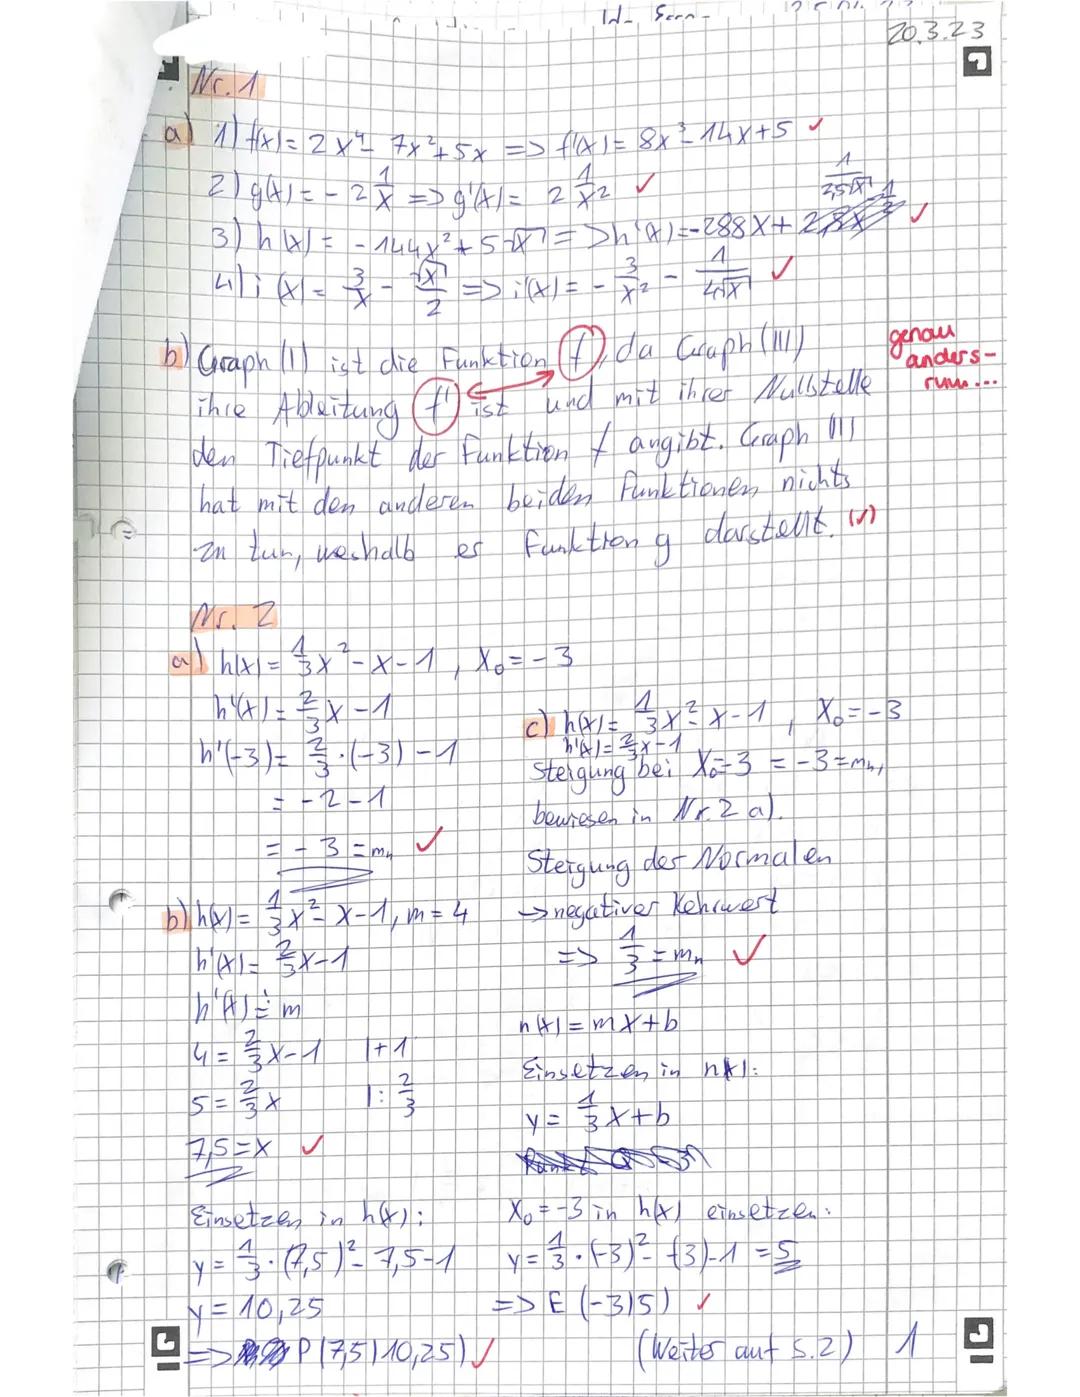 20.3.23
Nr. 1
a) 1) f(x) = 2x⁴ - 7x² + 5x => f'(x) = 8x³ - 14x + 5 ✓
2) g(x) = - 2 1/x => g'(x) = 2 1/x² ✓
3) h(x) = - 144x² + 5√x => h'(x) = -288x + 1/2,5√x ✓
4) i(x) = 3/x - √x/2 => i'(x) = - 3/x² - 1/4√x ✓
b) Graph (I) ist die Funktion f, da Graph (III)
genau
anders-
rum...
ihre Ableitung f' ist und mit ihrer Nullstelle
den Tiefpunkt der Funktion f angibt. Graph III
hat mit den anderen beiden Funktionen nichts
zu tun, weshalb er Funktion g darstellt. (✓)
Nr. 2
a) h(x) = 1/3x² - x - 1, x₀ = - 3
h'(x) = 2/3x - 1
h'(-3) = 2/3 · (-3) - 1
= - 2 - 1
= - 3 = mₕ ✓
b) h(x) = 1/3x² - x - 1, m = 4
h'(x) = 2/3x - 1
h'(x) = m
4 = 2/3x - 1 | + 1
5 = 2/3x | : 2/3
7,5 = x ✓
Einsetzen in h(x):
y = 1/3 · (7,5)² - 7,5 - 1
y = 10,25
=> P(7,5|10,25) ✓
c) h(x) = 1/3x² - x - 1, x₀ = - 3
h'(x) = 2/3x - 1
Steigung bei x₀ = 3 = -3 = mₕ,
bewiesen in Nr. 2 a).
Steigung der Normalen
→ negativer Kehrwert
=> 1/3 = mₙ ✓
n(x) = mx + b
Einsetzen in n(x):
y = 1/3x + b
x₀ = -3 in h(x) einsetzen:
y = 1/3 · (-3)² - (-3) - 1 = 5
=> E (-3|5) ✓
(Weiter auf S. 2) 1